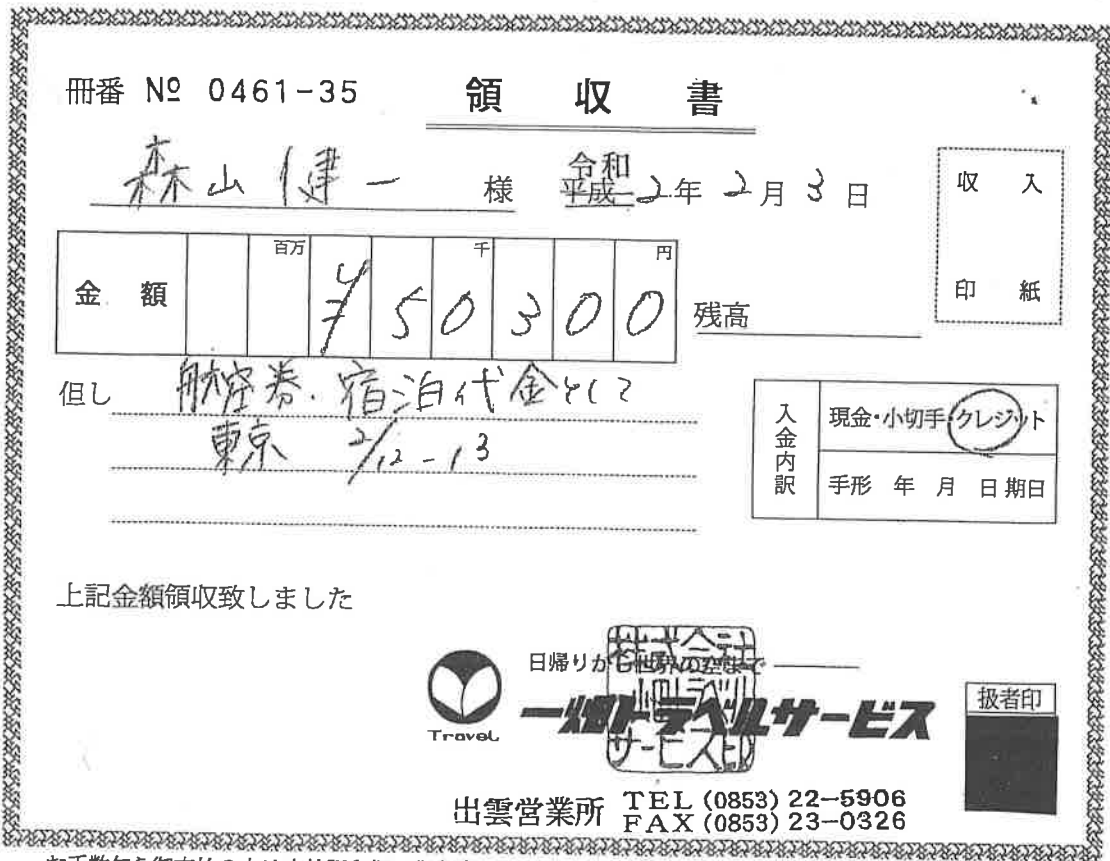 冊番 № 0461-35 領収書
森山健一 様 令和 平成 2年 2月 3日
収入
印紙
金額 百万 千 円 ¥50300 残高
但し 航空券・宿泊代金として
東京 2/12-13
入金内訳 現金・小切手・クレジット
手形 年 月 日期日
上記金額領収致しました
日帰りから世界の空まで
Travel 一畑トラベルサービス
扱者印
出雲営業所 TEL (0853) 22-5906
FAX (0853) 23-0326